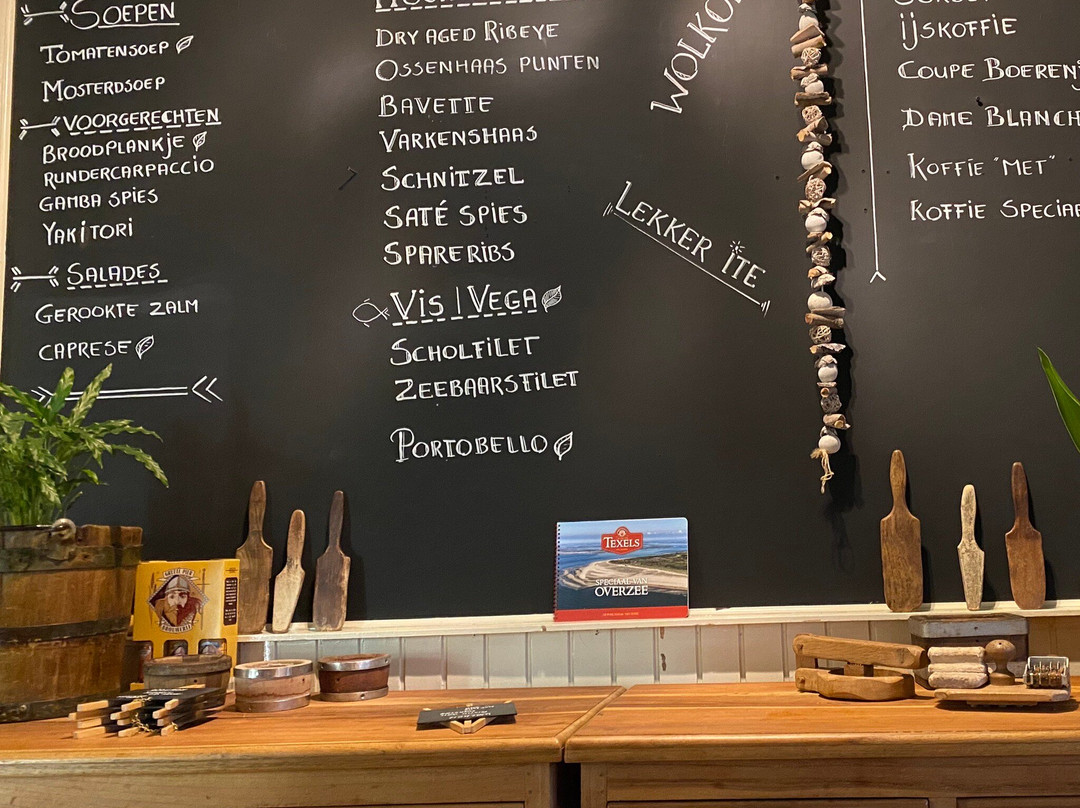 SOEPEN
TOMATENSOEP
MOSTERDSOEP
VOORGERECHTEN
BROODPLANKJE
RUNDERCARPACCIO
GAMBA SPIES
YAKITORI
SALADES
GEROOKTE ZALM
CAPRESE
DRY AGED RIBEYE
OSSENHAAS PUNTEN
BAVETTE
VARKENSHAAS
SCHNITZEL
SATÉ SPIES
SPARERIBS
VIS | VEGA
SCHOLFILET
ZEEBAARSFILET
PORTOBELLO
WOLKO
LEKKER ITE
IJSKOFFIE
COUPE BOERENJ
DAME BLANCH
KOFFIE "MET"
KOFFIE SPECIA
TEXELS
SPECIAAL VAN
OVERZEE